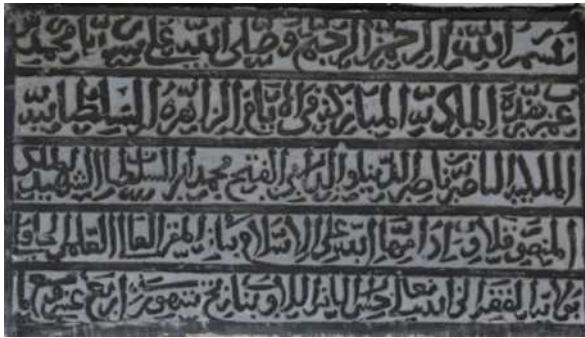 بسم الله الرحمن الرحيم وصلى الله على سيدنا محمد
عمر هذه المباركة في الايام الزاهرة السلطانية
الملكية الناصرية ناصر الدنيا والدين ابي الفتح محمد ابن السلطان الشهيد الملك
المنصور قلاوون ادامها الله على الاسلام المقر العالي
الفقير الى الله تعالى بتاريخ شهور اربع عشر